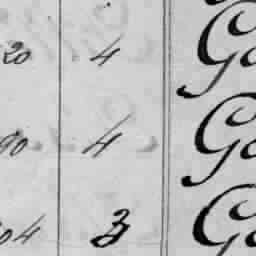 20 4 Ga
90 4 Ga
04 3 Ga